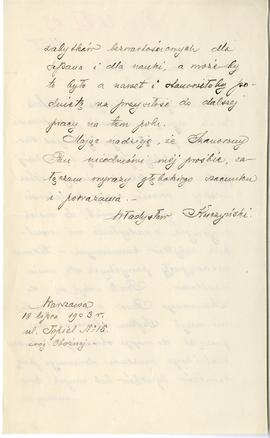 zabytków bezwartościowych dla
Pana i dla nauki, a może by
to było a nawet i stanowiłoby po-
dnietę na przyszłość do dalszej
pracy na tem polu.
Mając nadzieję, że Szanowny
Pan nieodmówi mój prośbie, za-
łączam wyrazy głębokiego szacunku
i poważania. –
Władysław Kuczyński.
Warszawa
18 lipca 1903 r.
ul. № 18.